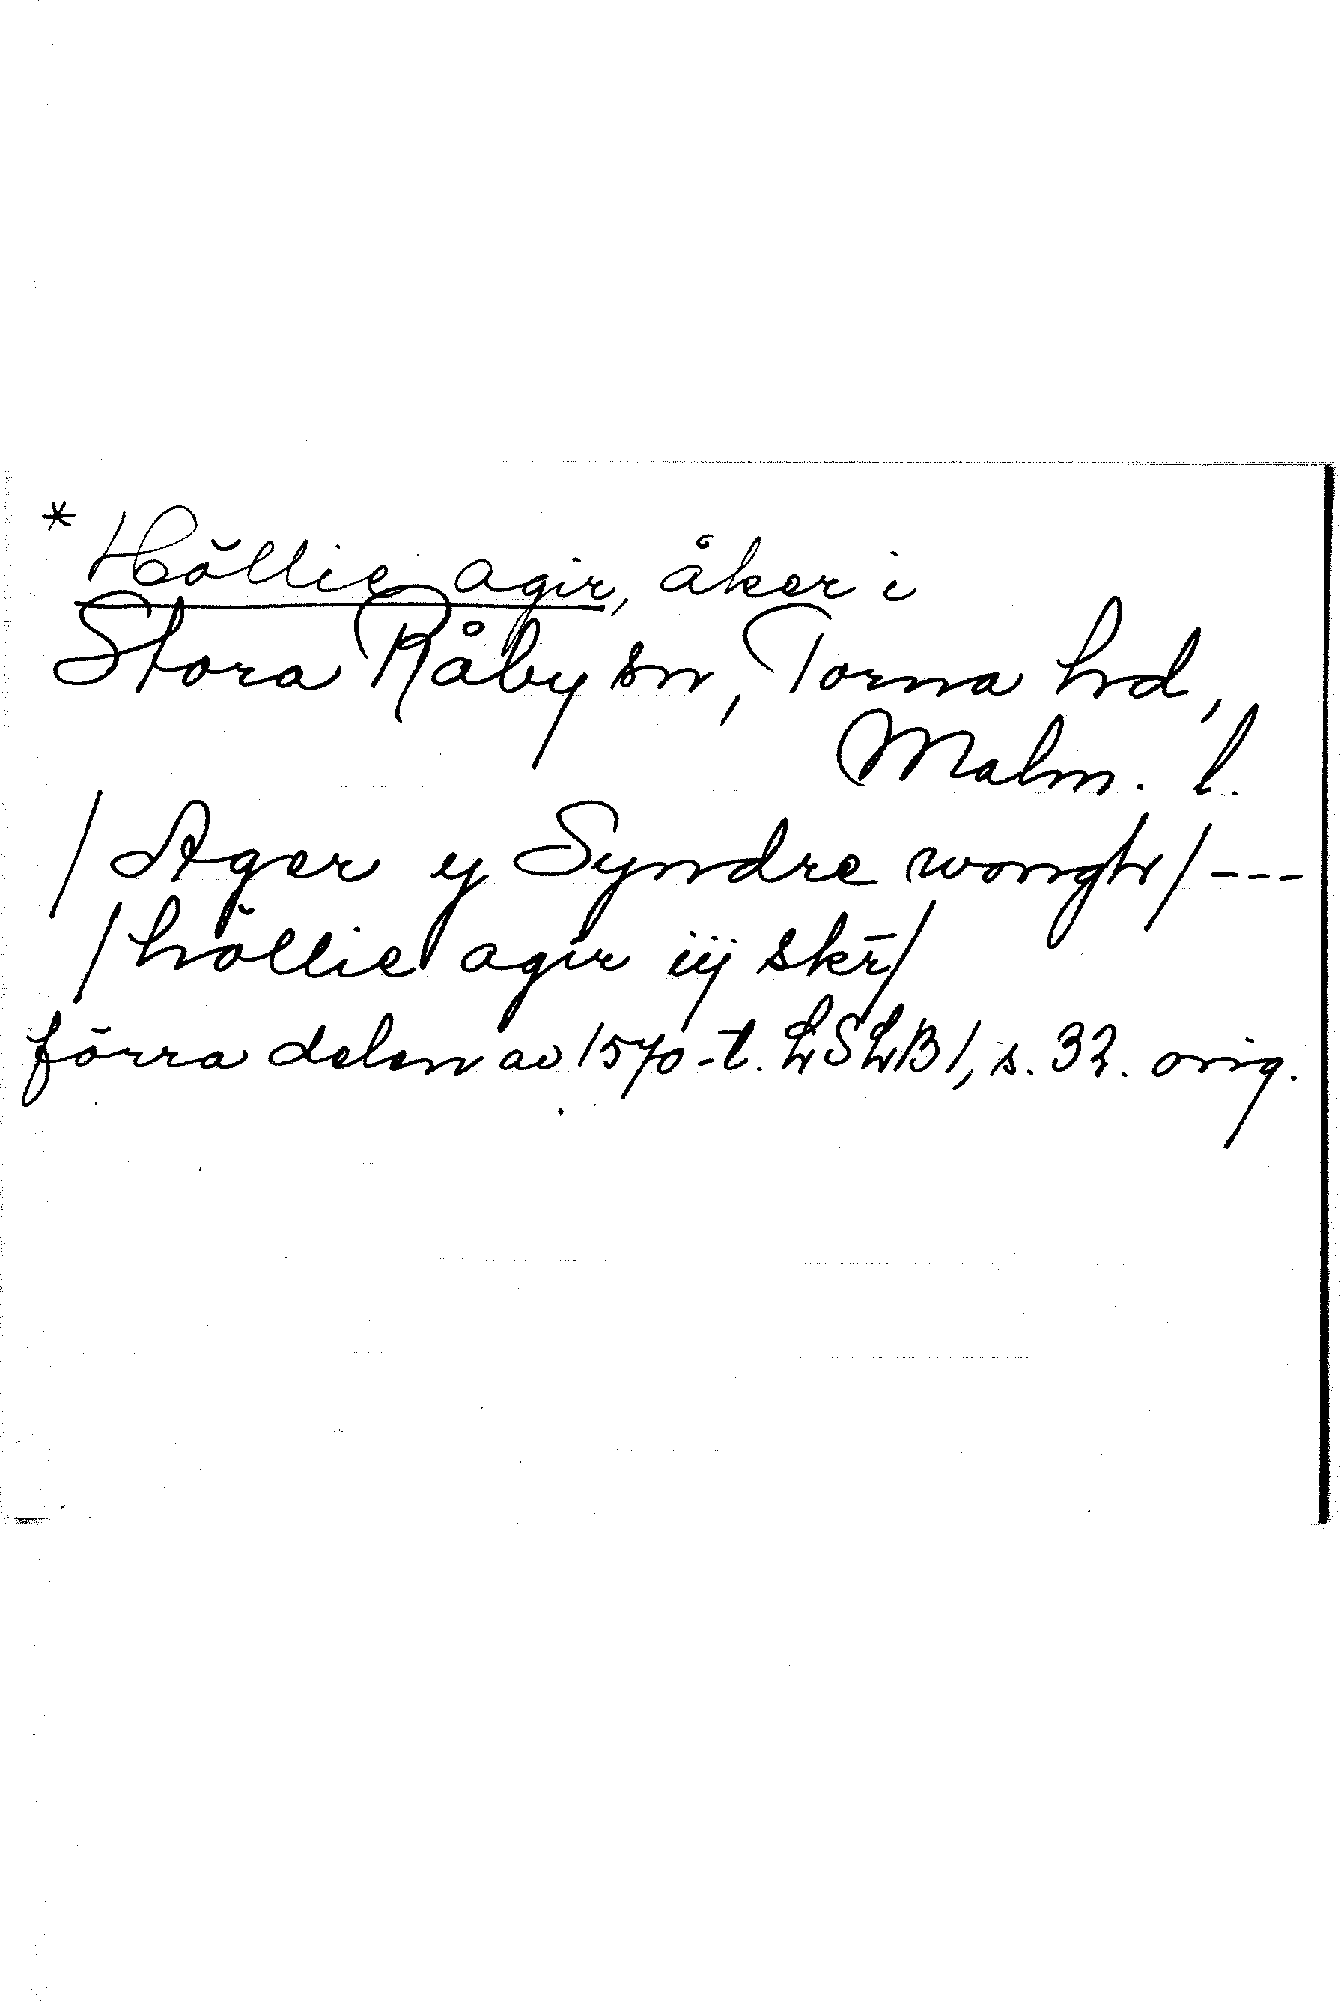 * Höllie agir, åker i
Stora Råby sn, Torna hd,
Malm. l.
/Ager ij Syndre wongh/ ---
/höllie agir iij skr̄/
förra delen av 1570-t. LSLB1, s. 32. orig.